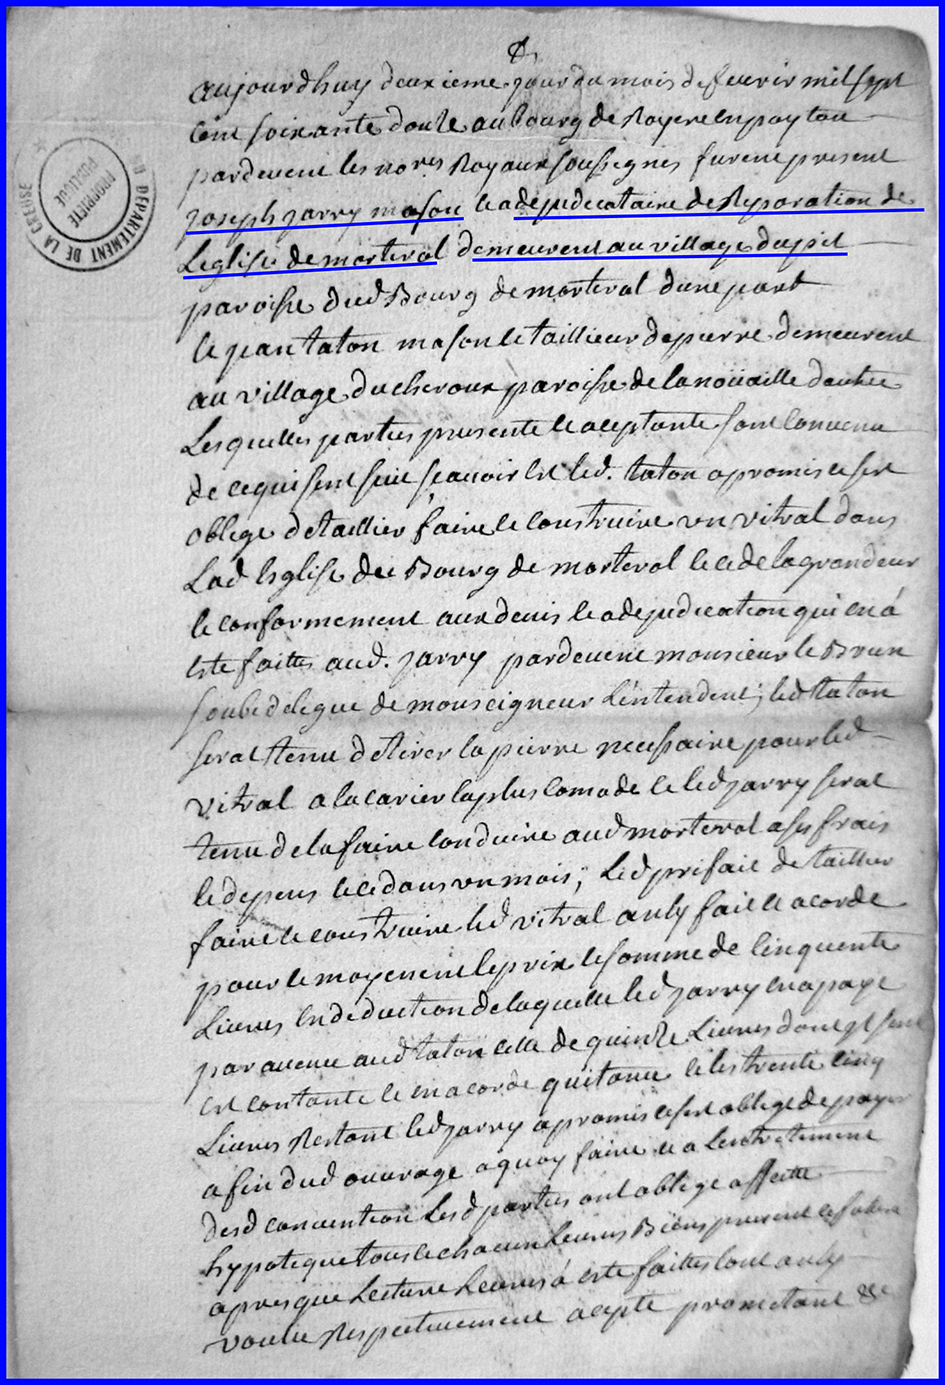 aujourdhuy deuxieme jour du mois de feuvrir mil sept
cent soixante douze au bourg de Royere en poytou
pardevent les no.res Royaux soussegnes furent present
Joseph Jarry mason et adejudecataire de Reparation de
Leglise de morteral demeurent au village du pit
paroisse dud Bourg de morteral dune part
et jean taton mason et taillieur de pierre demeurent
au village du cheroux paroisse de la noüaille dautre
Lesquelles parties presente et aceptante sont convenu
de ce qui sent suit scauoir est led. taton a promis et sest
oblege de taillier faire et construire un vitral dans
Lad Esglise du Bourg de morteral et ce de la grandeur
et conformement aux denis et adejudication qui en á
este faittes aud. Jarry pardevent monsieur le Brun
soubdelegue de monseigneur Lentendent; led taton
serat tenu de tirer la pierre necessaire pour led
vitral a la carier la plus comode et led Jarry serat
tenu de la faire conduire aud morteral a ses frais
et depens et ce dans un mois; Led prifait de taillier
faire et construire led vitral ansy fait et acorde
pour et moyenent le prix et somme de cinquente
Livres en deduction de laquelle led Jarry en a paye
par avence aud taton celle de quinze Livres dont il sent
est contante et en acorde quitance et les trente cinq
Livres Restant led Jarry a promis et sest oblege de payer
a fin dud ouvrage a quoy faire et a Lentretement
desd convention Lesd parties ont oblege affecte
hypoteque tous et chacun Leures Biens present et future
apres que Lecture Leures á este faittes lont ansy
voulu Respectivement acepte prometant &c
DEPARTEMENT DE LA CREUSE
PROPRIETE
PUBLIQUE